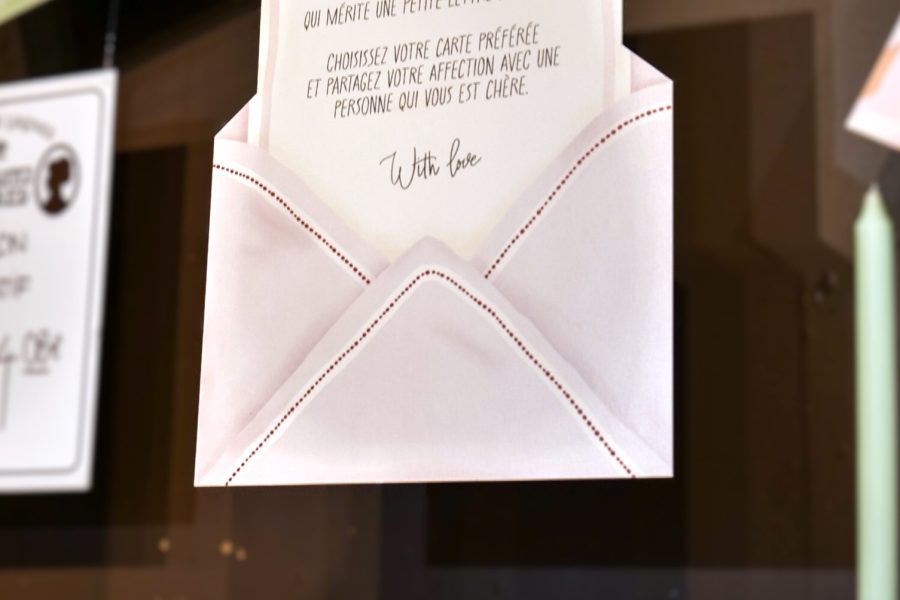 QUI MÉRITE UNE PETITE
CHOISISSEZ VOTRE CARTE PRÉFÉRÉE
ET PARTAGEZ VOTRE AFFECTION AVEC UNE
PERSONNE QUI VOUS EST CHÈRE.
With love